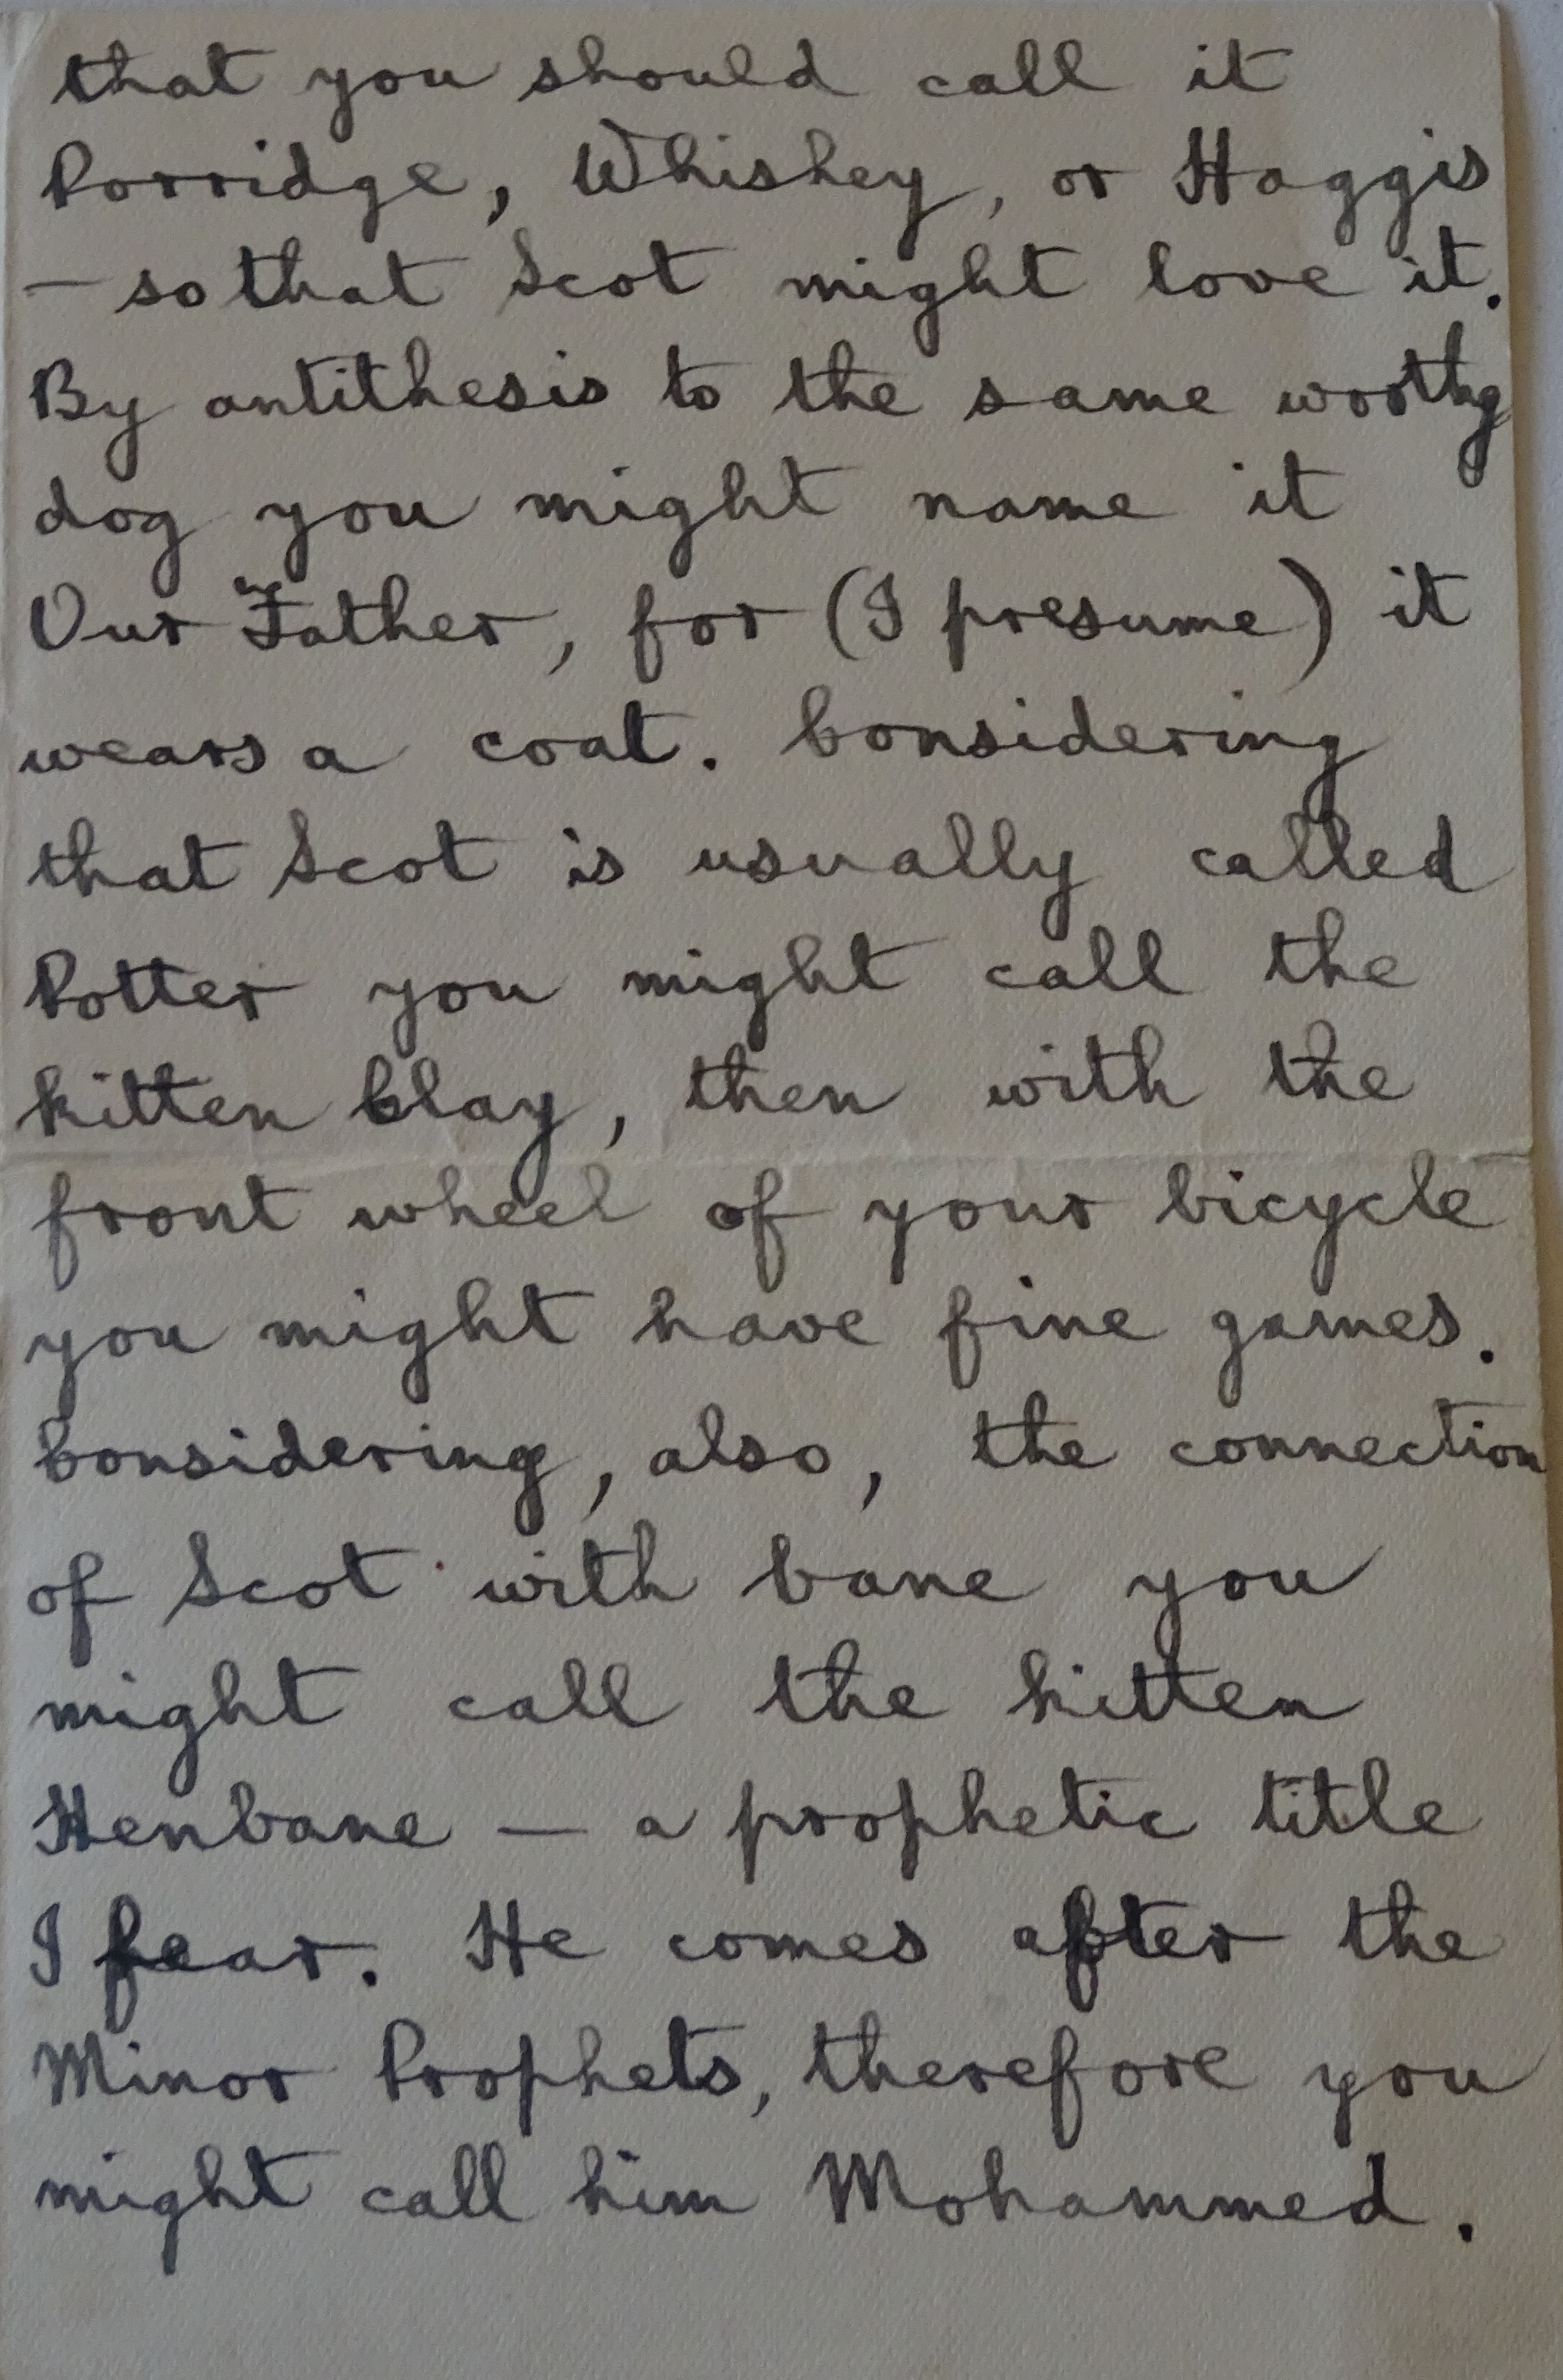 that you should call it
Porridge, Whiskey, or Haggis
— so that Scot might love it.
By antithesis to the same worthy
dog you might name it
Our Father, for (I presume) it
wears a coat. Considering
that Scot is usually called
Potter you might call the
kitten Clay, then with the
front wheel of your bicycle
you might have fine games.
Considering, also, the connection
of Scot with bane you
might call the kitten
Henbane — a prophetic title
I fear. He comes after the
Minor Prophets, therefore you
might call him Mohammed.